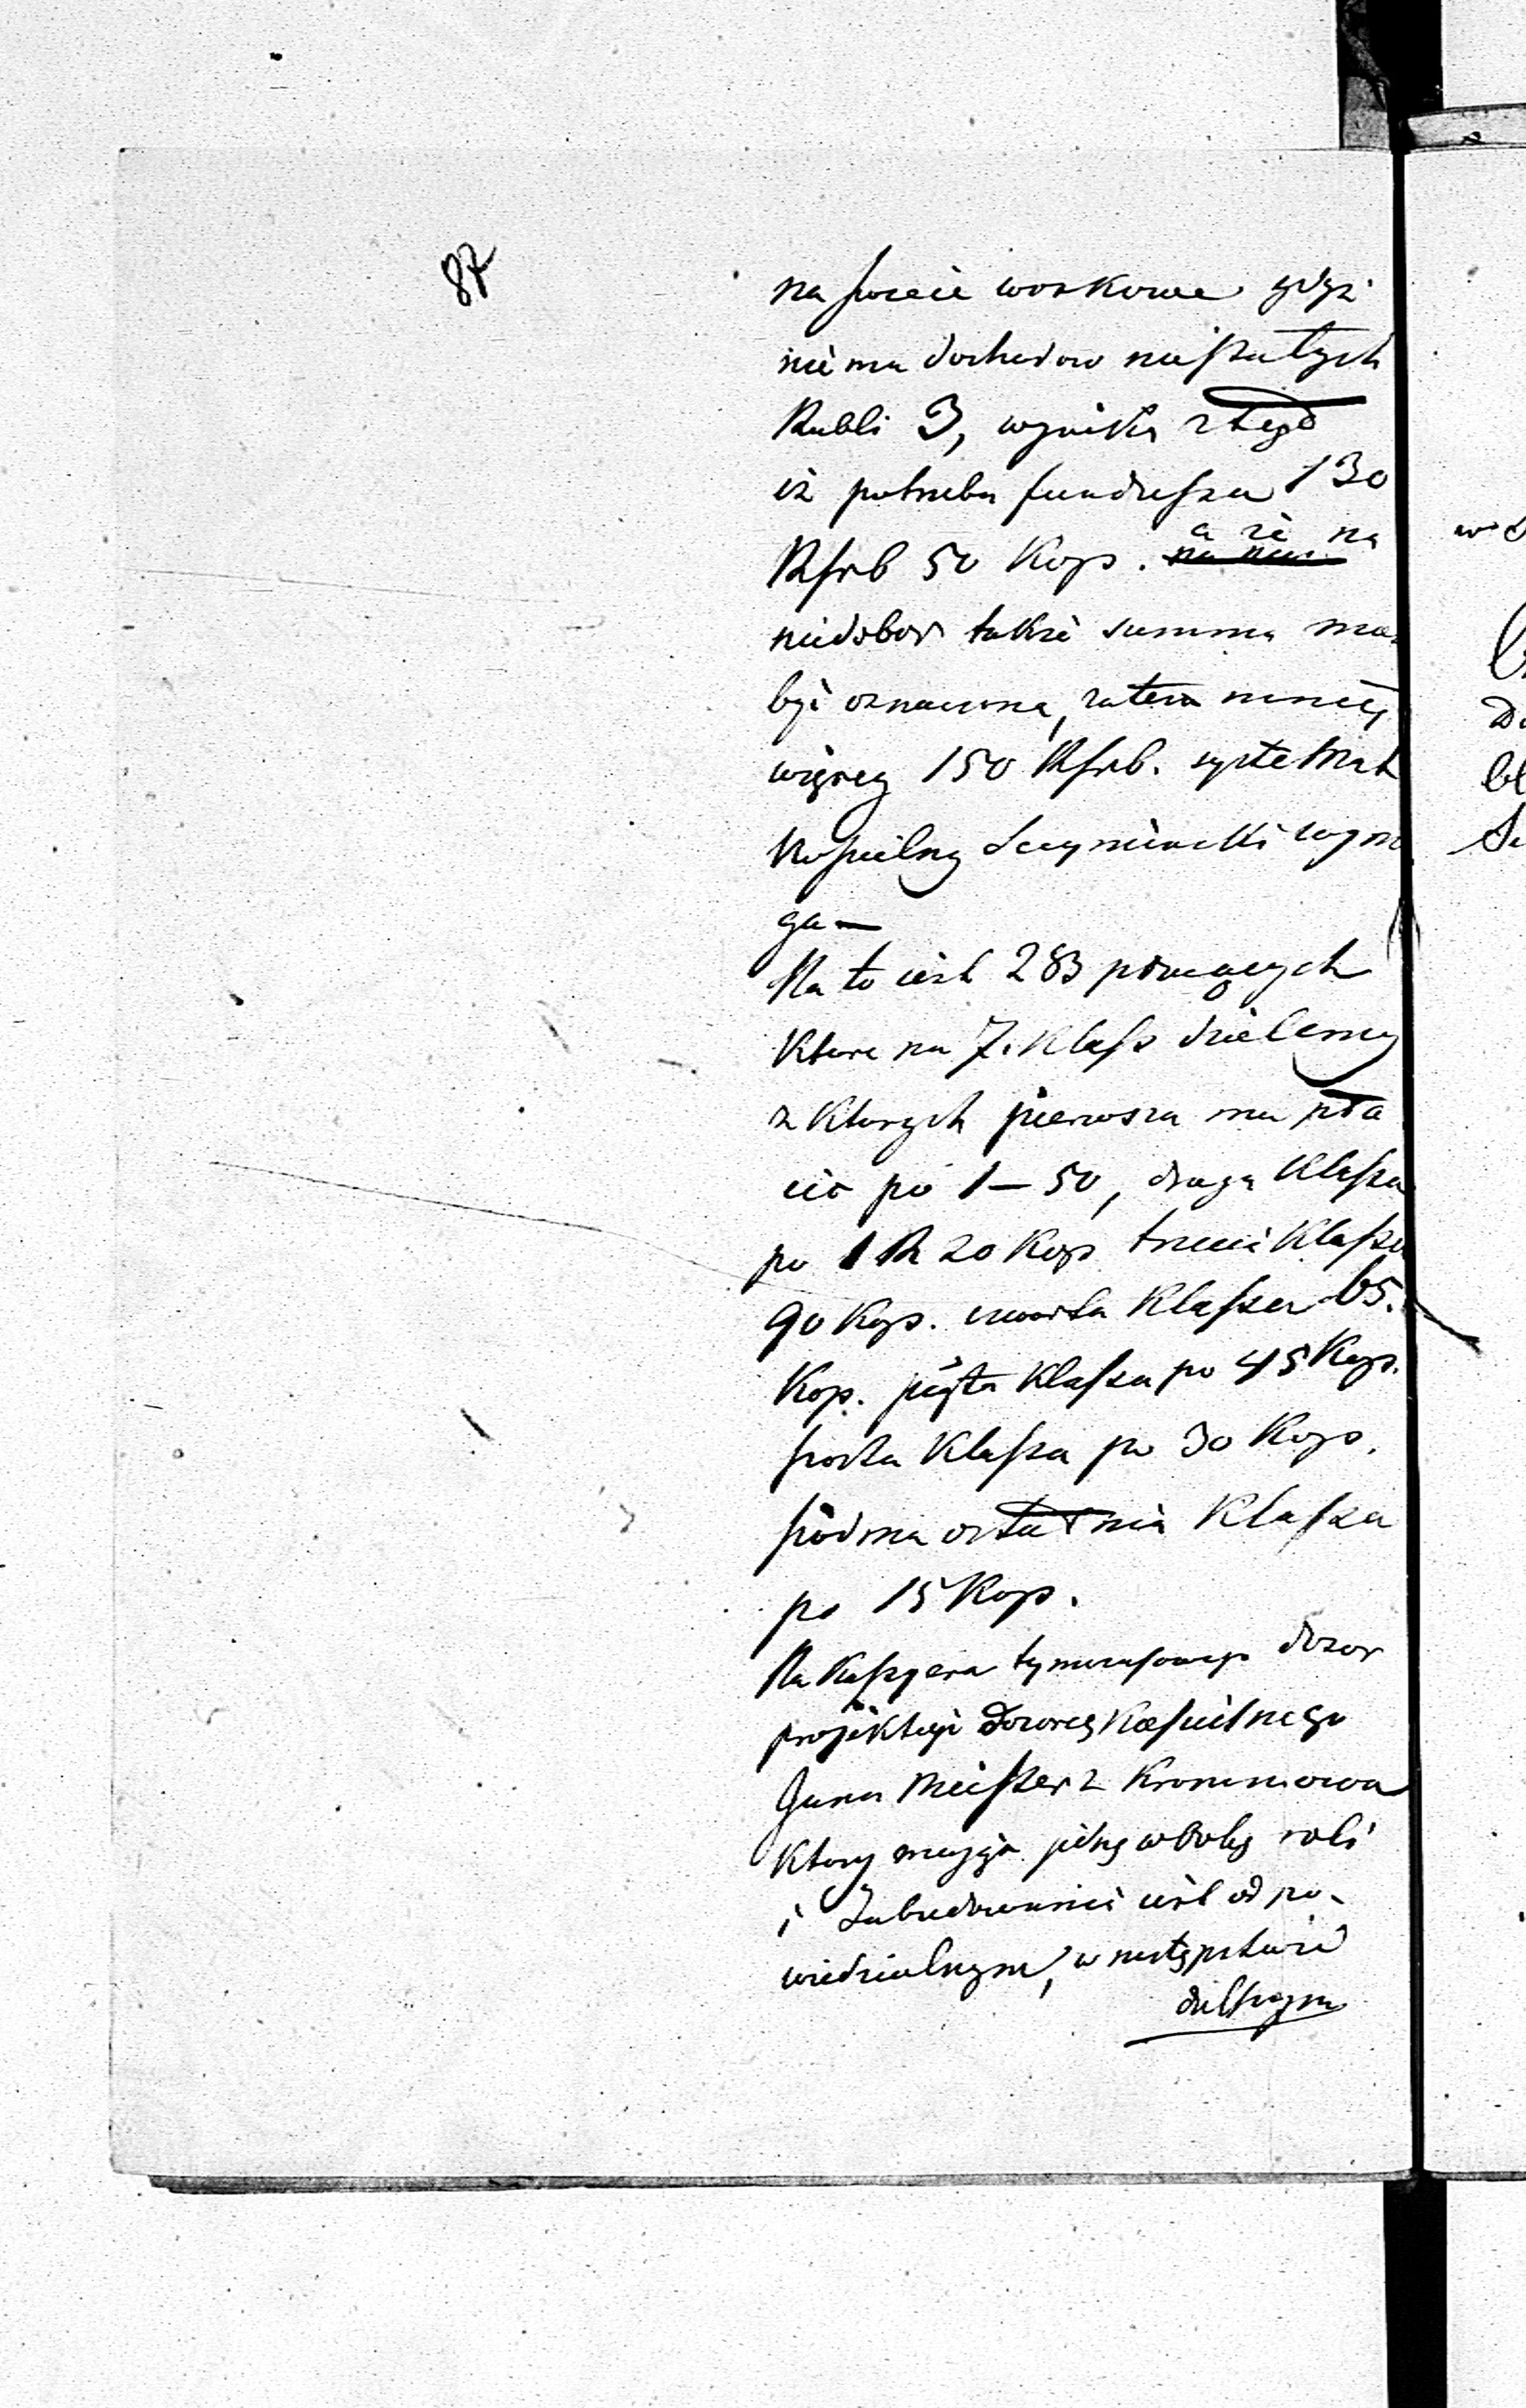 87
na swiece woskowe gdyz
nie ma dochodow niestałych
Rubli 3, wynika ztąd
iż potrzeba funduszu 130
Rsrb 50 Kop. a że na
niedobor także summa ma
byc oznaczona, zatem mniej
więcej 150 Rsrb. systemat
Koscielny Secyminski wyma
ga —
Na to iest 283
Ktore na 7. Klass dzielemy
z Ktorych pierwsza ma pła
cic po 1–50, druga Klassa
po 1 R 20 Kop trzecia Klassa
90 Kop. czwarta Klassa 65.
Kop. piąta Klassa po 45 Kop.
szosta Klassa po 30 Kop.
siodma ostatnia Klassa
po 15 Kop.
Na Kassyera tymczasowego dozor
projektuje Dozorcę Koscielnego
Jana Meister z Kromnowa
Ktory maiąc jedną włokę roli
i Zabudowania iest odpo-
wiedzialnym, w następstwie
dalszym